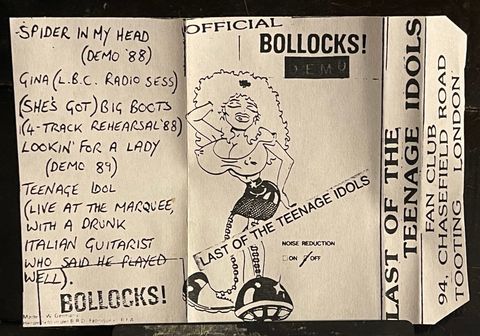 SPIDER IN MY HEAD
(DEMO '88)
GINA (L.B.C. RADIO SESS)
(SHE'S GOT) BIG BOOTS
(4-TRACK REHEARSAL '88)
LOOKIN' FOR A LADY
(DEMO 89)
TEENAGE IDOL
(LIVE AT THE MARQUEE,
WITH A DRUNK
ITALIAN GUITARIST
WHO SAID HE PLAYED
WELL).
BOLLOCKS!
OFFICIAL
BOLLOCKS!
DEMO
LAST OF THE TEENAGE IDOLS
NOISE REDUCTION
ON OFF
LAST OF THE
TEENAGE IDOLS
FAN CLUB
94, CHASEFIELD ROAD
TOOTING LONDON